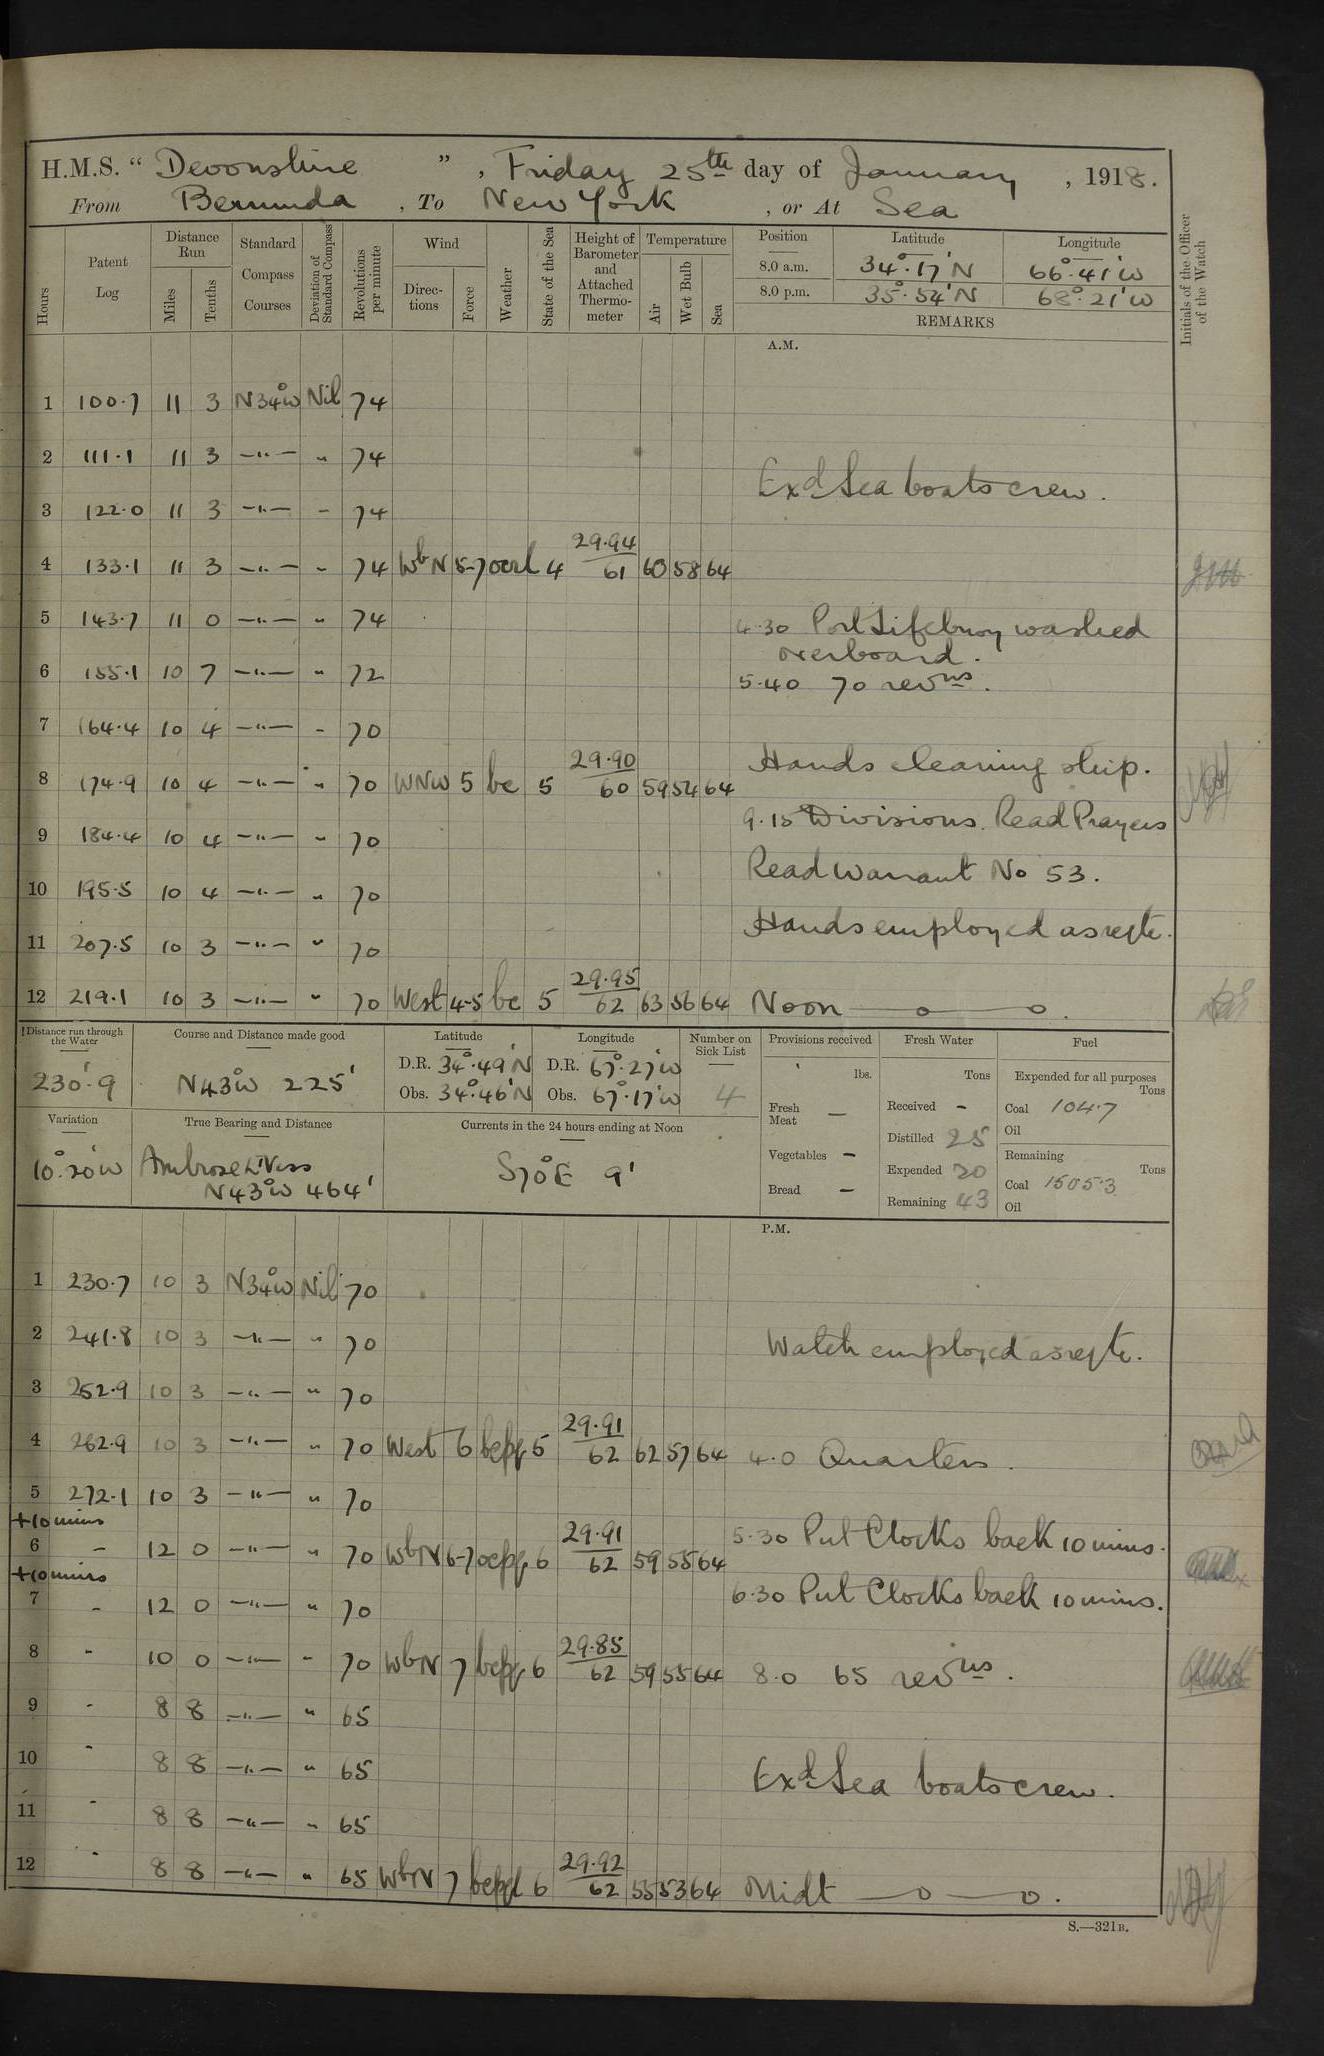 H.M.S. “ Devonshire ” , Friday 25th day of January , 1918.
From Bermuda , To New York , or At Sea
Hours
Patent Log
Distance Run
Miles
Tenths
Standard Compass Courses
Deviation of Standard Compass
Revolutions per minute
Wind
Directions
Force
Weather
State of the Sea
Height of Barometer and Attached Thermometer
Temperature
Air
Wet Bulb
Sea
Position Latitude Longitude
8.0 a.m. 34°.17'N 66°.41'W
8.0 p.m. 35°.54'N 68°.21'W
REMARKS
Initials of the Officer of the Watch
A.M.
1 100.7 11 3 N34°W Nil 74
2 111.1 11 3 —"— " 74
Exd Sea boats crew.
3 122.0 11 3 —"— " 74
4 133.1 11 3 —"— " 74 WbN 5-7 4 29.94 61 60 58 64
5 143.7 11 0 —"— " 74 4.30 Port Lifebuoy washed
overboard.
6 155.1 10 7 —"— " 72 5.40 70 revns.
7 164.4 10 4 —"— " 70
8 174.9 10 4 —"— " 70 WNW 5 bc 5 29.90 60 59 54 64 Hands cleaning ship.
9 184.4 10 4 —"— " 70 9.15 Divisions. Read Prayers
10 195.5 10 4 —"— " 70 Read Warrant No 53.
11 207.5 10 3 —"— " 70 Hands employed as reqte.
12 219.1 10 3 —"— " 70 West 4-5 bc 5 29.95 62 63 56 64 Noon —o—o.
Distance run through the Water
230'.9
Course and Distance made good
N43°W 225'
Latitude
D.R. 34°.49'N
Obs. 34°.46'N
Longitude
D.R. 67°.27'W
Obs. 67°.17'W
Number on Sick List
4
Provisions received
lbs.
Fresh Meat —
Vegetables —
Bread —
Fresh Water
Tons
Received -
Distilled 25
Expended 20
Remaining 43
Fuel
Expended for all purposes
Tons
Coal 104.7
Oil
Remaining
Tons
Coal 1505.3
Oil
Variation
10°.20'W
True Bearing and Distance
Ambrose Lt Vess
N43°W 464'
Currents in the 24 hours ending at Noon
S70°E 9'
P.M.
1 230.7 10 3 N34°W Nil 70
2 241.8 10 3 —"— " 70 Watch employed as reqte.
3 252.9 10 3 —"— " 70
4 262.9 10 3 —"— " 70 West 6 bcpq 5 29.91 62 62 57 64 4.0 Quarters.
5 272.1 10 3 —"— " 70
+10 mins
6 - 12 0 —"— " 70 WbN 6-7 ocpq 6 29.91 62 59 55 64 5.30 Put Clocks back 10 mins.
+10 mins
7 - 12 0 —"— " 70 6.30 Put Clocks back 10 mins.
8 - 10 0 —"— " 70 WbN 7 bcpq 6 29.85 62 59 55 64 8.0 65 revns.
9 - 8 8 —"— " 65
10 - 8 8 —"— " 65 Exd Sea boats crew.
11 - 8 8 —"— " 65
12 - 8 8 —"— " 65 WbN 7 6 29.92 62 55 53 64 Midt —o—o.
S.—321B.